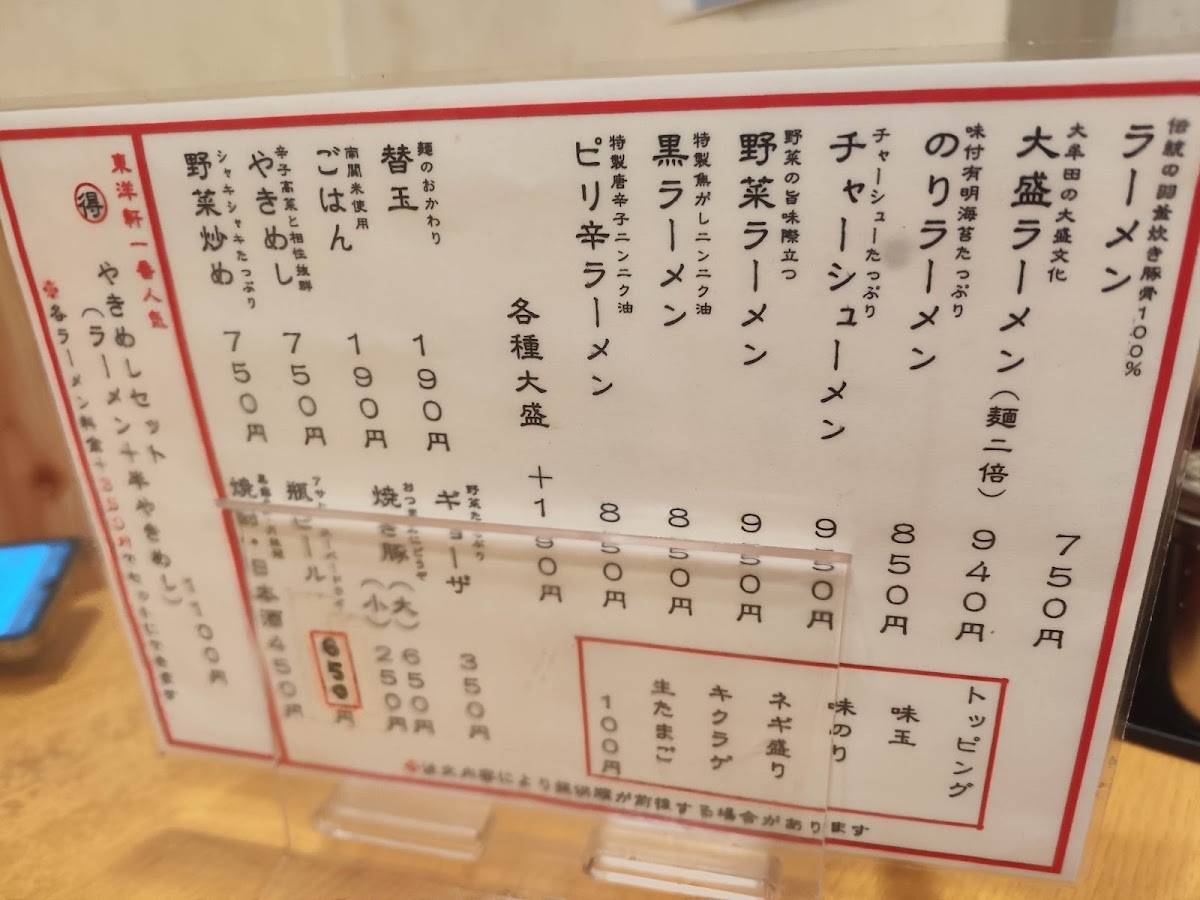 伝統の羽釜炊き豚骨100%
ラーメン 750円
大牟田の大盛文化
大盛ラーメン(麺二倍) 940円
味付有明海苔たっぷり
のりラーメン 850円
チャーシューたっぷり
チャーシューメン 950円
野菜の旨味際立つ
野菜ラーメン 950円
特製焦がしニンニク油
黒ラーメン 850円
特製唐辛子ニンニク油
ピリ辛ラーメン 850円
各種大盛 +190円
トッピング
味玉
味のり
ネギ盛り
キクラゲ
生たまご
100円
麺のおかわり
替玉 190円
南関米使用
ごはん 190円
辛子高菜と相性抜群
やきめし 750円
シャキシャキたっぷり
野菜炒め 750円
野菜たっぷり
ギョーザ 350円
おつまみに
焼き豚(大) 650円
(小) 250円
瓶ビール 650円
日本酒 450円
が前後する場合があります
東洋軒一番人気
得 やきめしセット
(ラーメン+半やきめし) 1100円
※各ラーメン料金+350円